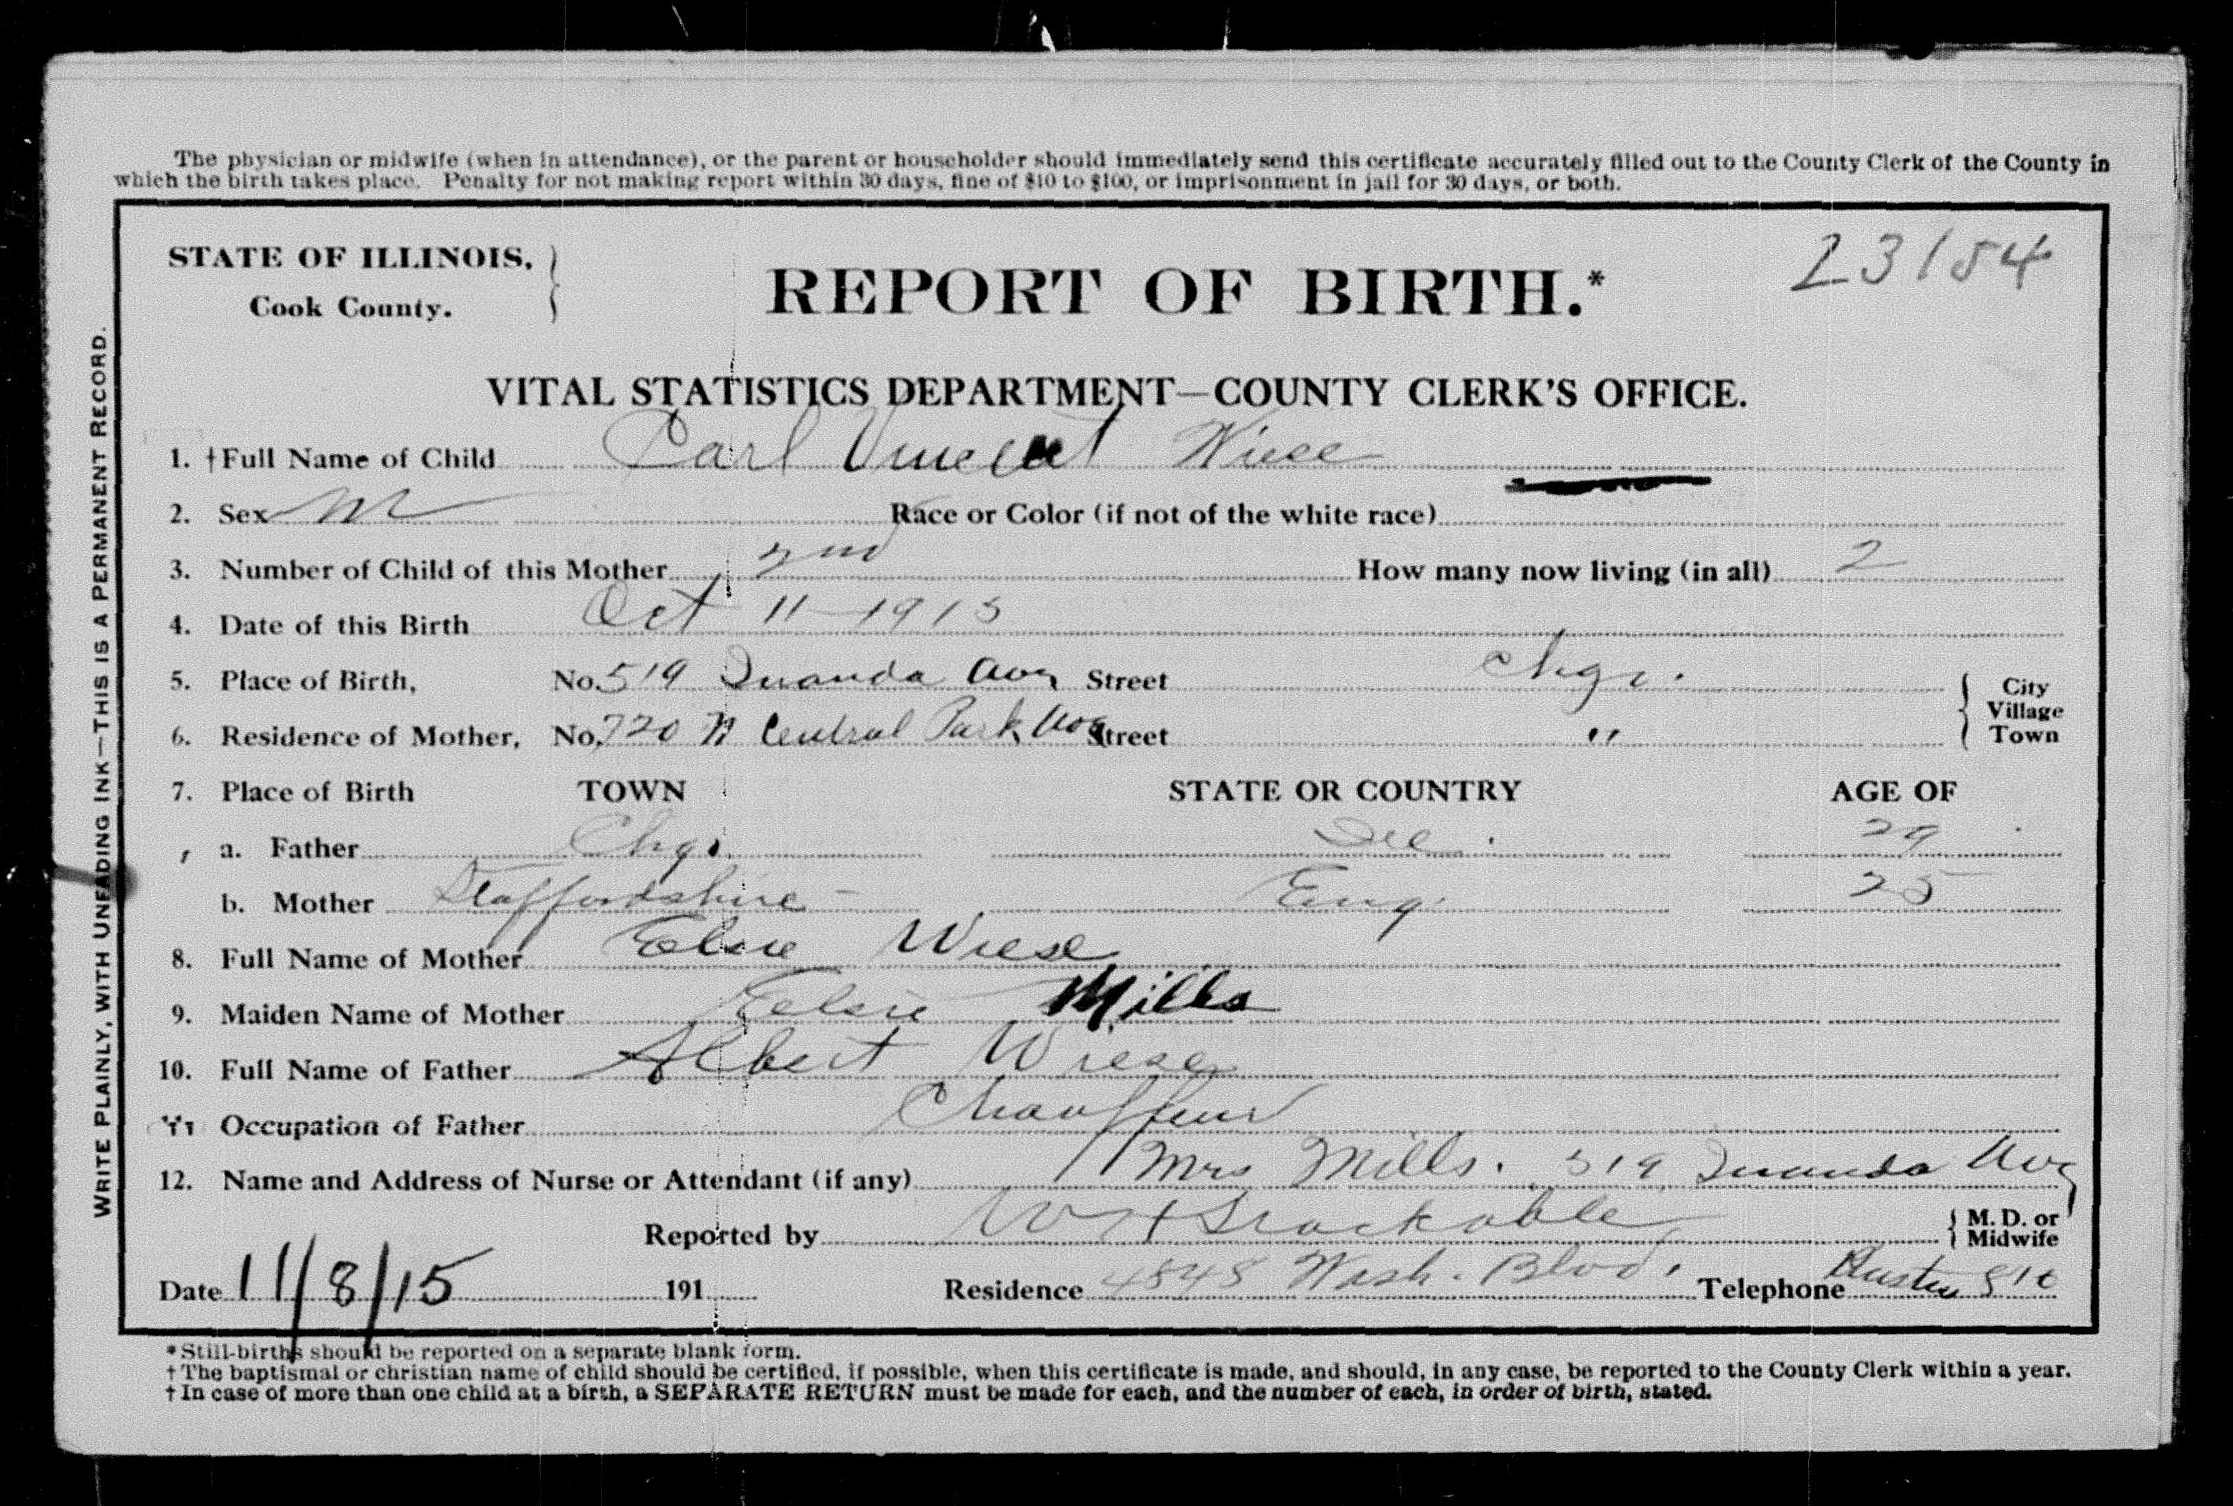 The physician or midwife (when in attendance), or the parent or householder should immediately send this certificate accurately filled out to the County Clerk of the County in
which the birth takes place. Penalty for not making report within 30 days, fine of $10 to $100, or imprisonment in jail for 30 days, or both.
WRITE PLAINLY, WITH UNFADING INK—THIS IS A PERMANENT RECORD.
STATE OF ILLINOIS,
Cook County.
REPORT OF BIRTH.*
23154
VITAL STATISTICS DEPARTMENT—COUNTY CLERK'S OFFICE.
1. †Full Name of Child Carl Vincent Wiese
2. Sex M Race or Color (if not of the white race)
3. Number of Child of this Mother 2nd How many now living (in all) 2
4. Date of this Birth Oct 11 1915
5. Place of Birth, No. 519 Ave Street Chgo. City
6. Residence of Mother, No. 720 N Central Park Ave Street " Village Town
7. Place of Birth TOWN STATE OR COUNTRY AGE OF
a. Father Chgo. Ill. 29
b. Mother Staffordshire Eng. 25
8. Full Name of Mother Elsie Wiese
9. Maiden Name of Mother Elsie Mills
10. Full Name of Father Albert Wiese
11 Occupation of Father Chauffeur
12. Name and Address of Nurse or Attendant (if any) Mrs Mills. 519 Ave
Reported by W H M. D. or Midwife
Date 11/8/15 191 Residence 4848 Wash. Blvd. Telephone
*Still-births should be reported on a separate blank form.
†The baptismal or christian name of child should be certified, if possible, when this certificate is made, and should, in any case, be reported to the County Clerk within a year.
†In case of more than one child at a birth, a SEPARATE RETURN must be made for each, and the number of each, in order of birth, stated.